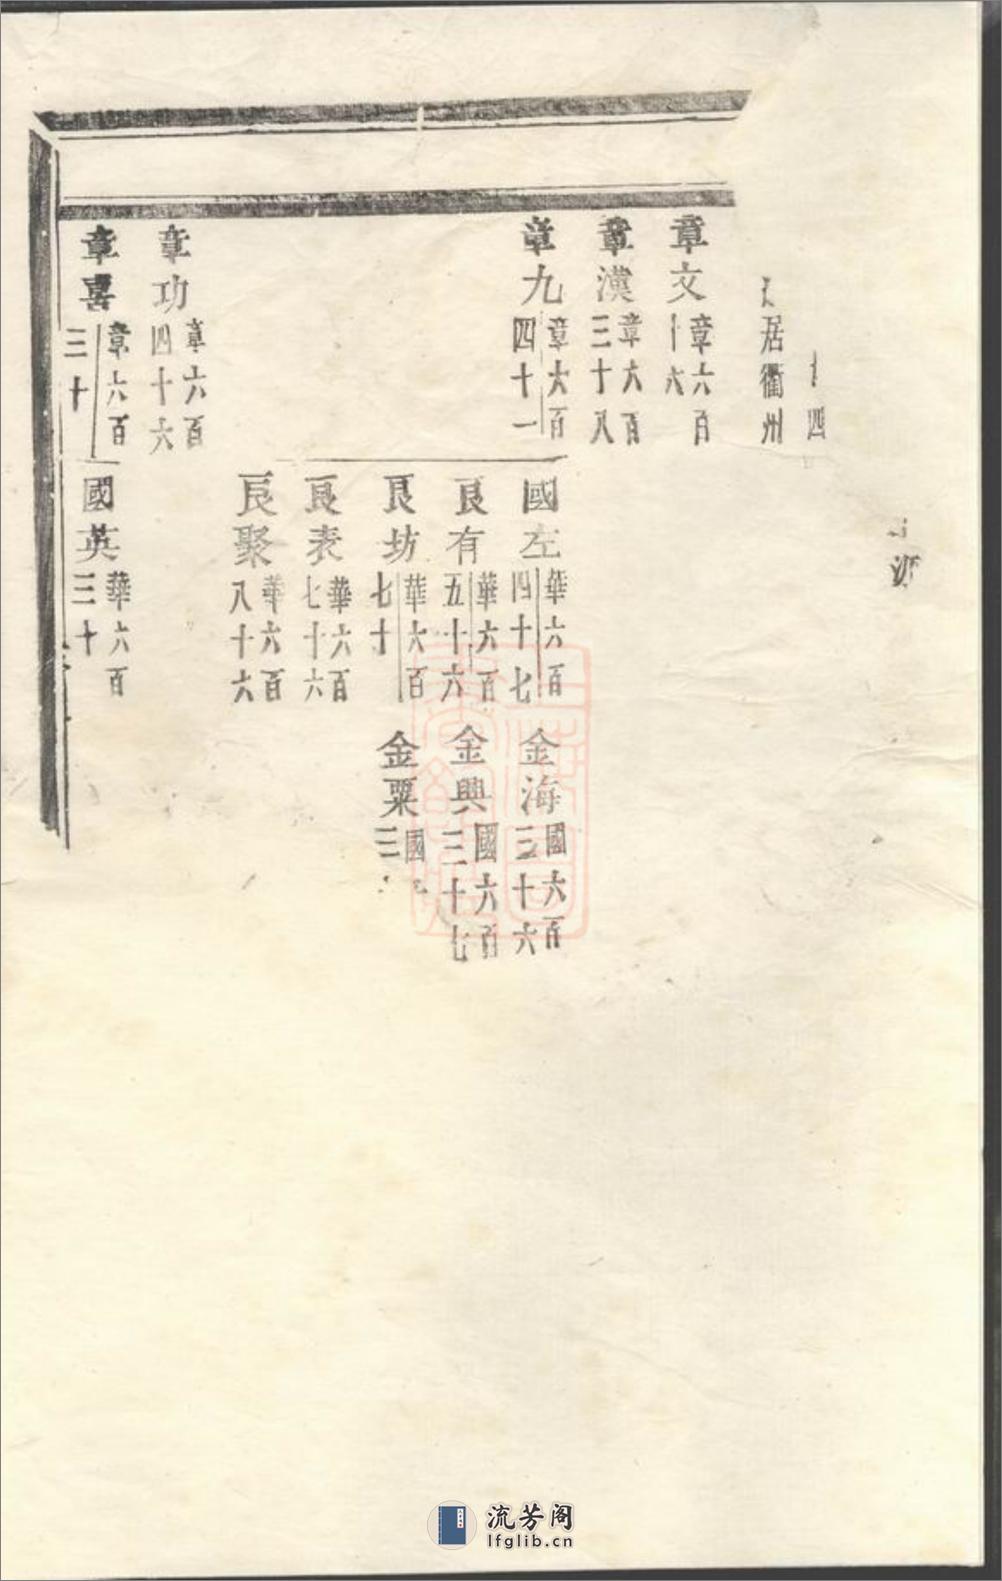 四
居衢州
章文 章六百十六
章漢 章六百三十八
章九 章六百四十一
章功 章六百四十六
章喜 章六百三十
國左 華六百四十七
良有 華六百五十六
良坊 華六百七十
良表 華六百七十六
良聚 華六百八十六
國英 華六百三十
金海 國六百三十六
金興 國六百三十七
金粟 國三
流芳阁
lfglib.cn